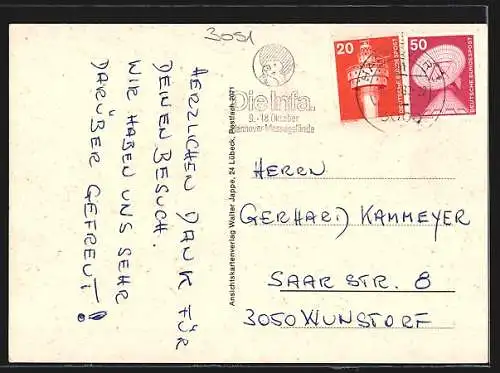 3051
20
DEUTSCHE BUNDESPOST
50
DEUTSCHE BUNDESPOST
Die Infa.
9.-18. Oktober
Hannover-Messegelände
HERZLICHEN DANK FÜR
DEINEN BESUCH.
WIR HABEN UNS SEHR
DARÜBER GEFREUT!
Ansichtskartenverlag Walter Jappe, 24 Lübeck, Postfach 2021
HERRN
GERHARD KAMMEYER
SAARSTR. 8
3050 WUNSTORF